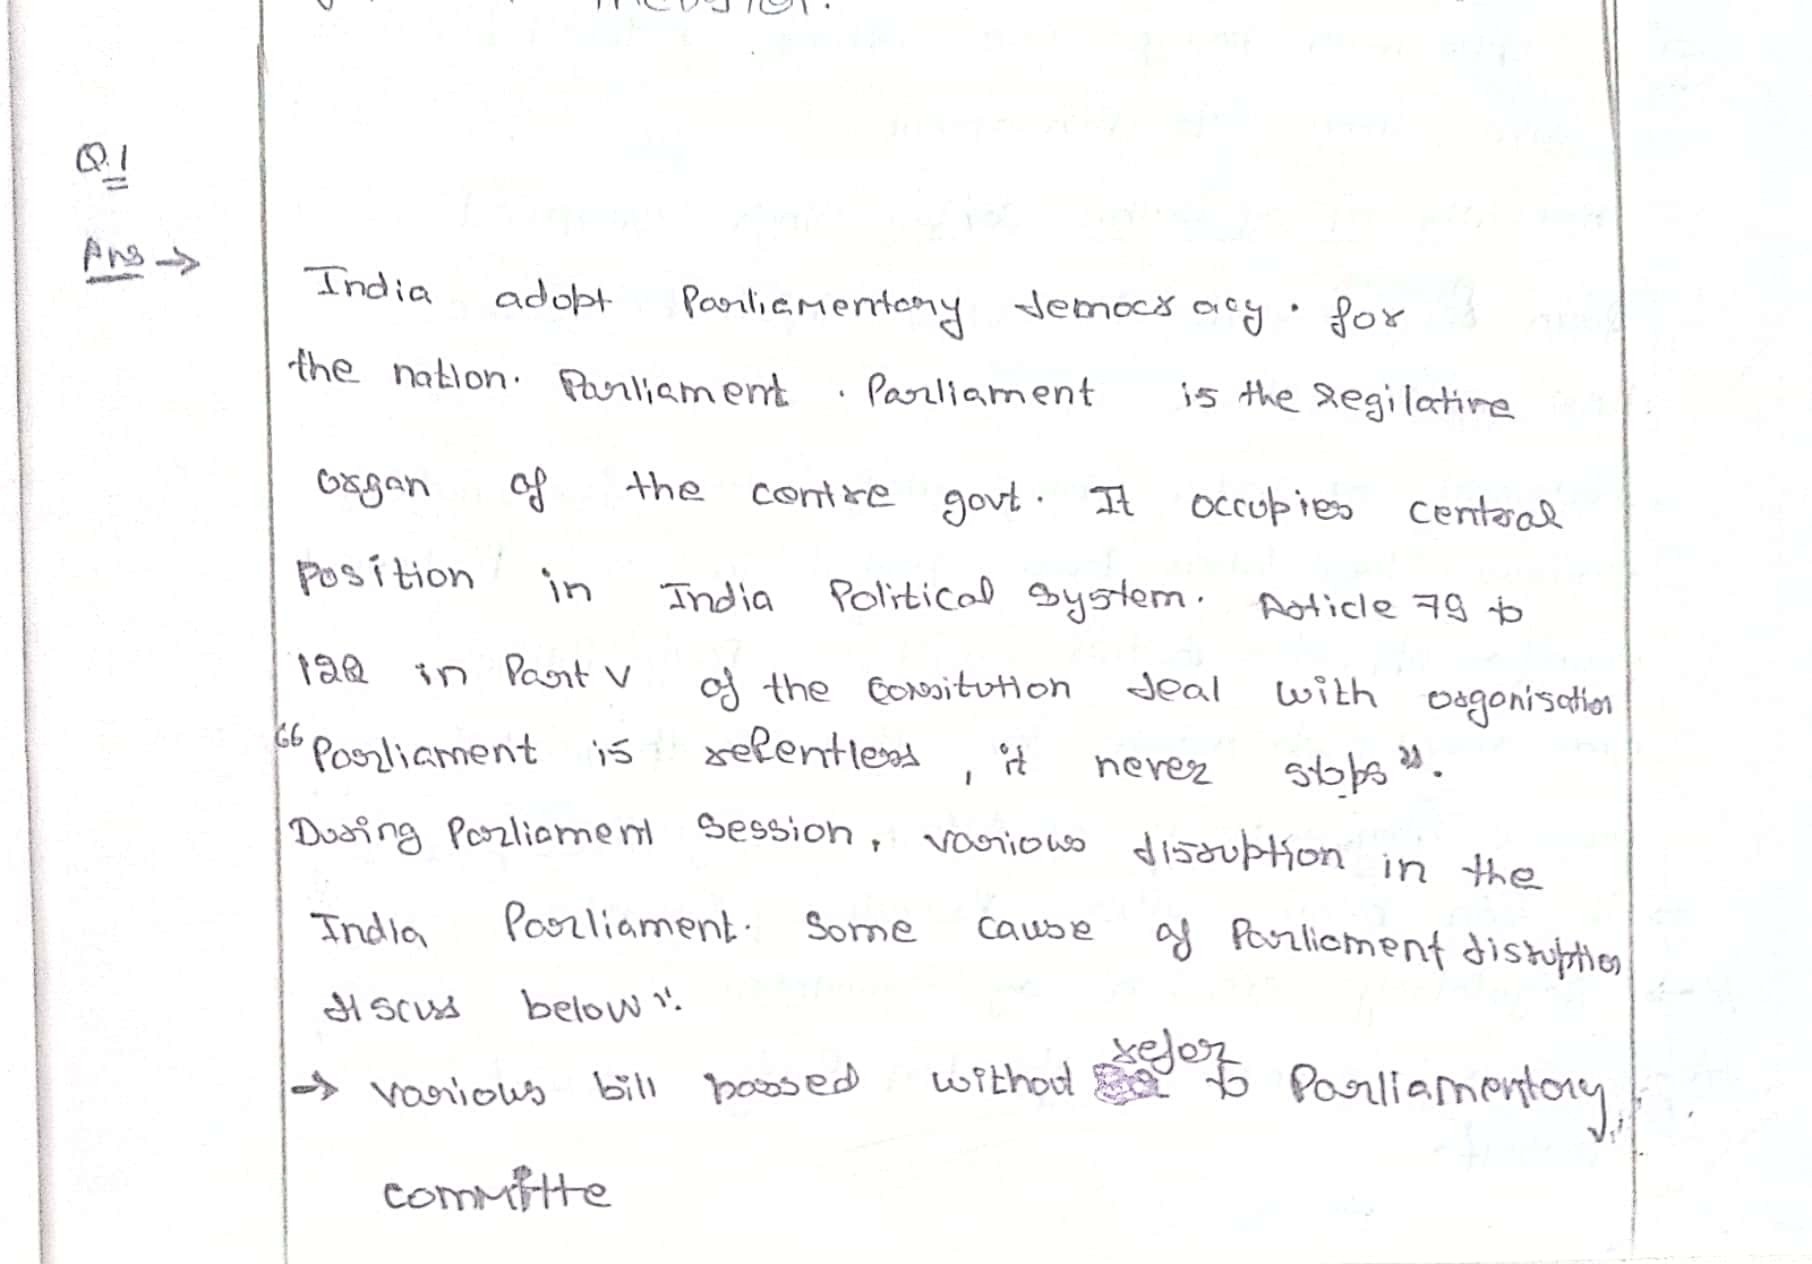 Q.1
Ans →
India adopt Parliamentary democracy. for
the nation. Parliament. Parliament is the legilative
organ of the centre govt. It occupies central
Position in India Political System. Article 79 to
122 in Part V of the Consitution deal with organisation
"Parliament is relentless, it never stops".
During Parliament Session, various disruption in the
India Parliament. Some cause of Parliament disruption
discuss below :
→ various bill passed without refer to Parliamentary
committe